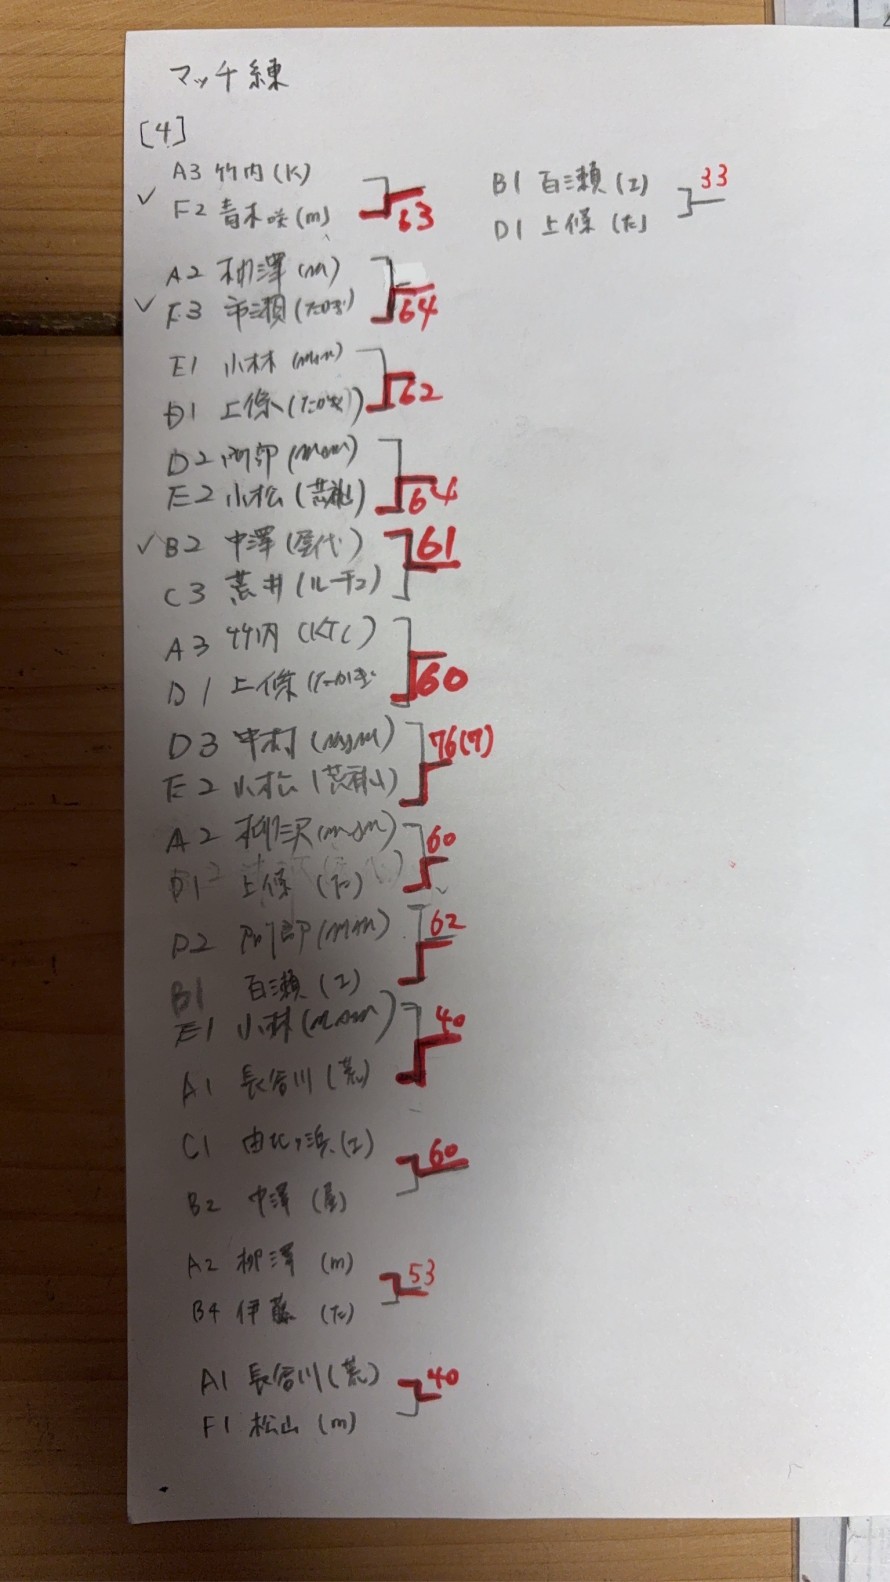 マッチ練
[4]
A3 竹内 (K)
✓ F2 青木咲 (m) 63
A2 柳澤 (m)
✓ E3 市瀬 (たかぎ) 64
E1 小林 (msm)
D1 上條 (たかぎ) 62
D2 阿部 (msm)
E2 小松 (荒神山) 64
✓ B2 中澤 (屋代) 61
C3 荒井 (ルーテコ)
A3 竹内 (KTC)
D1 上條 (たかぎ 60
D3 中村 (msm) 76(7)
E2 小松 (荒神山)
A2 柳沢 (msm) 60
D1 上條 (た)
D2 阿部 (msm) 62
B1 百瀬 (エ)
E1 小林 (msm) 40
A1 長谷川 (荒)
C1 由比ヶ浜 (エ) 60
B2 中澤 (屋)
A2 柳澤 (m) 53
B4 伊藤 (た)
A1 長谷川 (荒) 40
F1 松山 (m)
B1 百瀬 (エ) 33
D1 上條 (た)